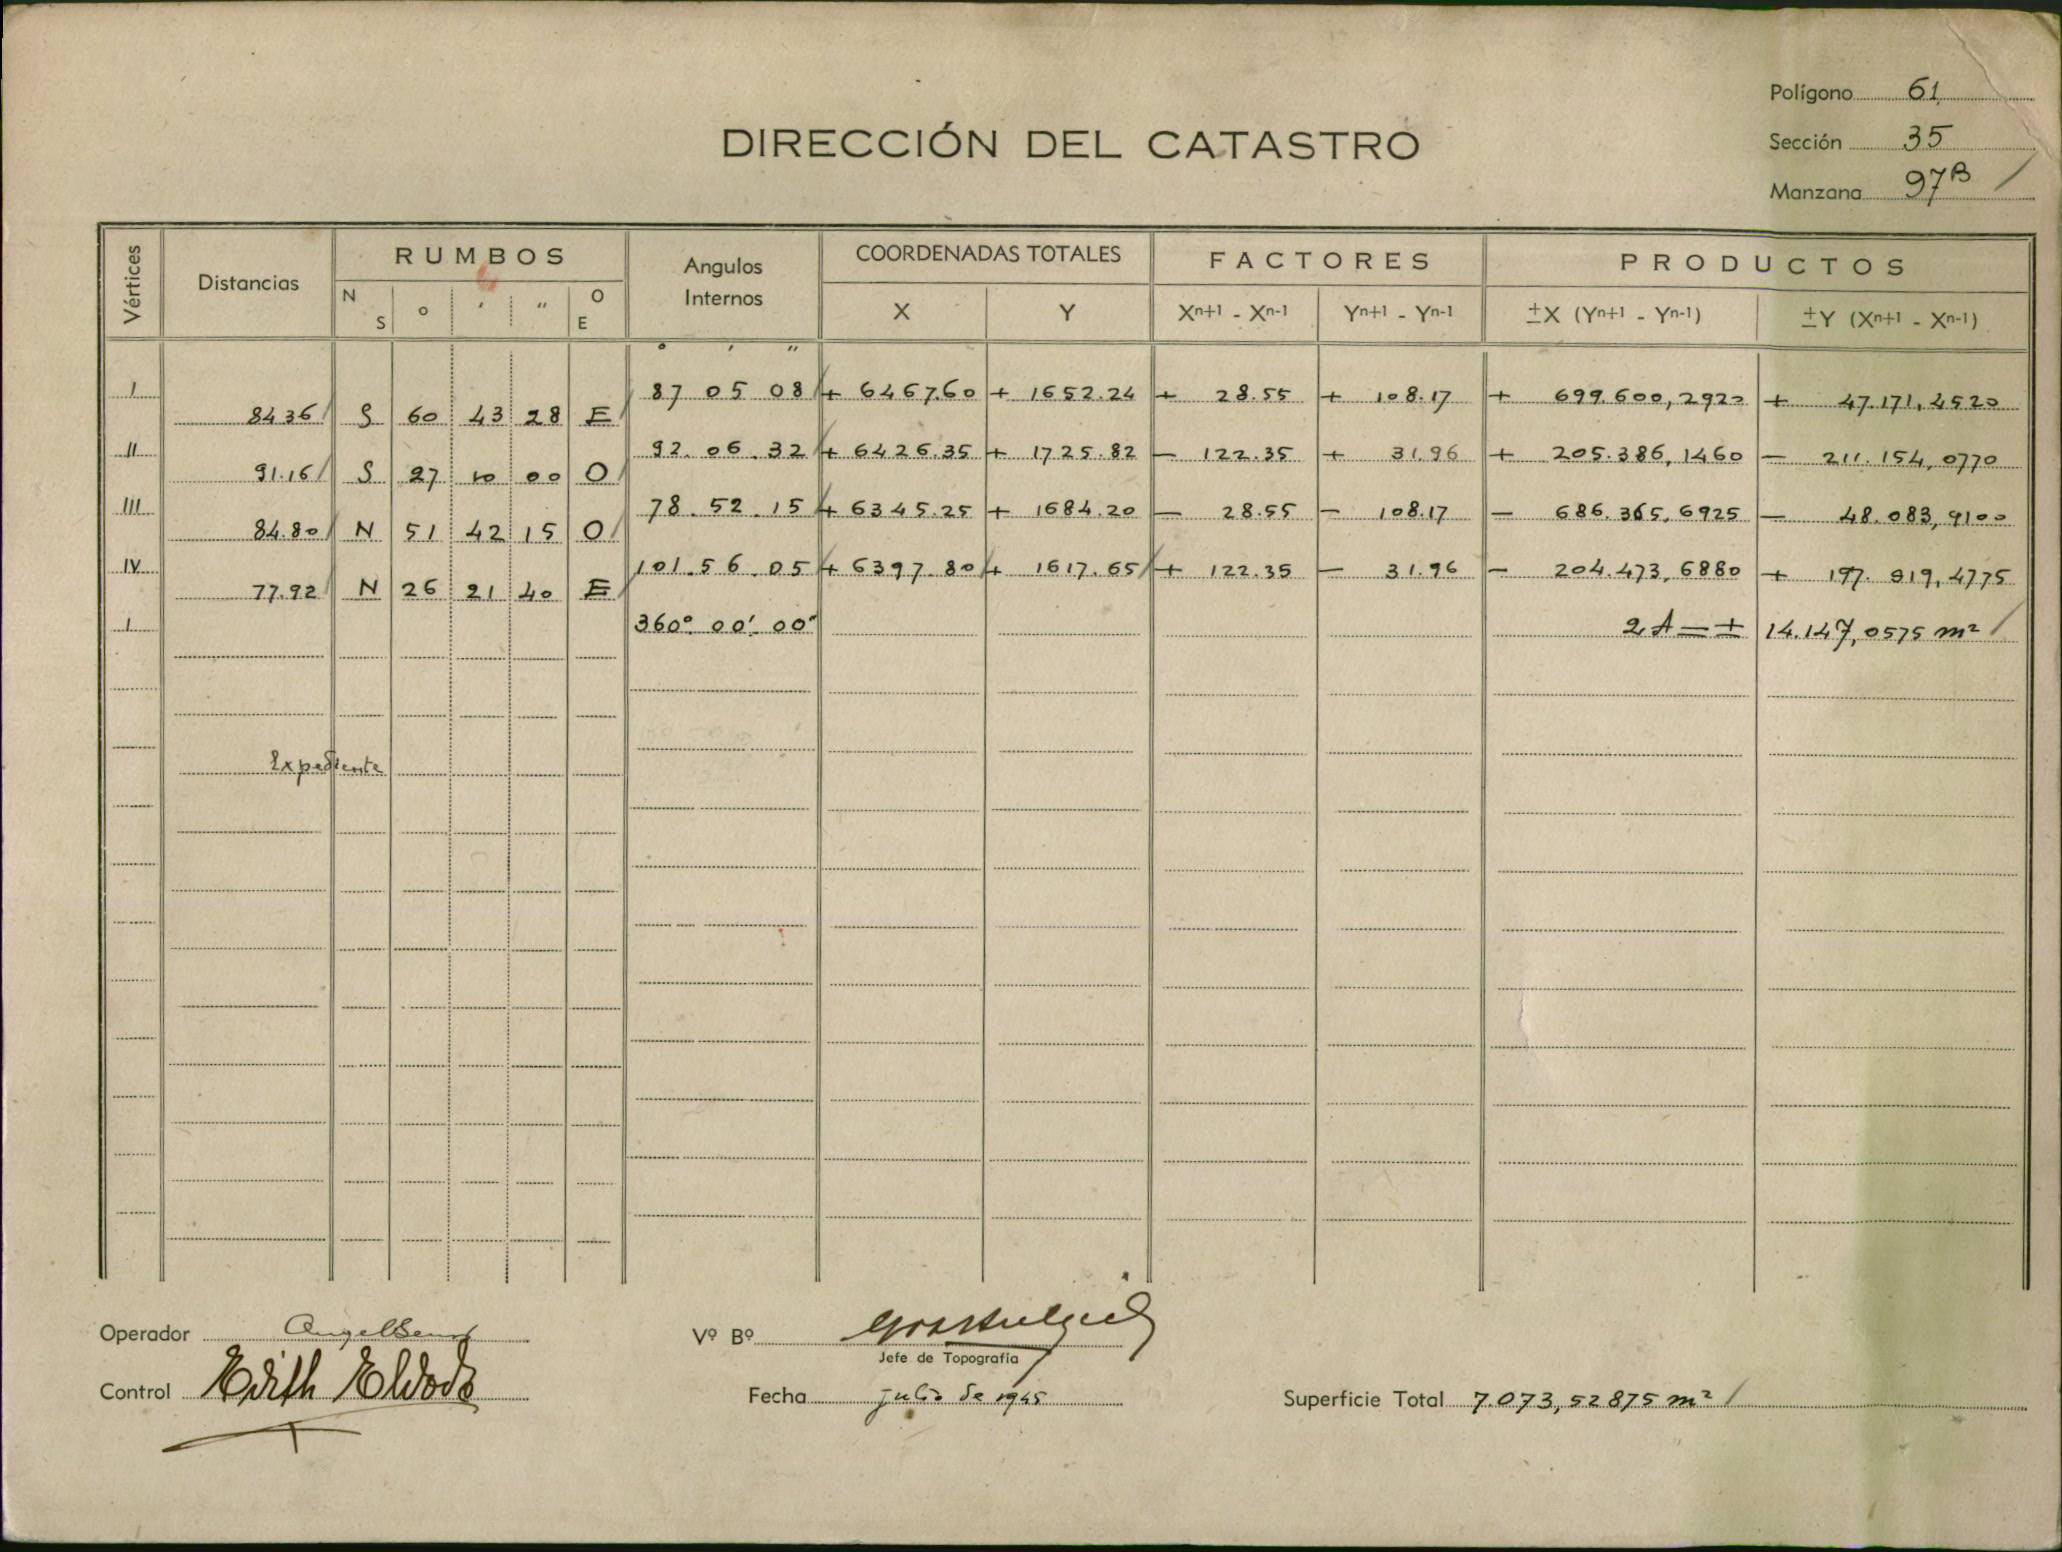 Polígono 61
Sección 35
Manzana 97B /
DIRECCIÓN DEL CATASTRO
Vértices Distancias RUMBOS Angulos Internos COORDENADAS TOTALES FACTORES PRODUCTOS
N S ° ' " O E X Y Xn+1 - Xn-1 Yn+1 - Yn-1 ±X (Yn+1 - Yn-1) ±Y (Xn+1 - Xn-1)
° ' "
I 87 05 08 + 6467.60 + 1652.24 + 28.55 + 108.17 + 699.600,2920 + 47.171,4520
84.36 S 60 43 28 E
II 92.06.32 + 6426.35 + 1725.82 - 122.35 + 31.96 + 205.386,1460 - 211.154,0770
91.16 S 27 10 00 O
III 78.52.15 + 6345.25 + 1684.20 - 28.55 - 108.17 - 686.365,6925 - 48.083,9100
84.80 N 51 42 15 O
IV 101.56.05 + 6397.80 + 1617.65 + 122.35 - 31.96 - 204.473,6880 + 197.919,4775
77.92 N 26 21 40 E
I 360° 00' 00" 2A = ± 14.147,0575 m² /
Expediente
Operador
Vº Bº
Jefe de Topografía
Control Edith
Fecha julio de 1945
Superficie Total 7.073,52875 m² /